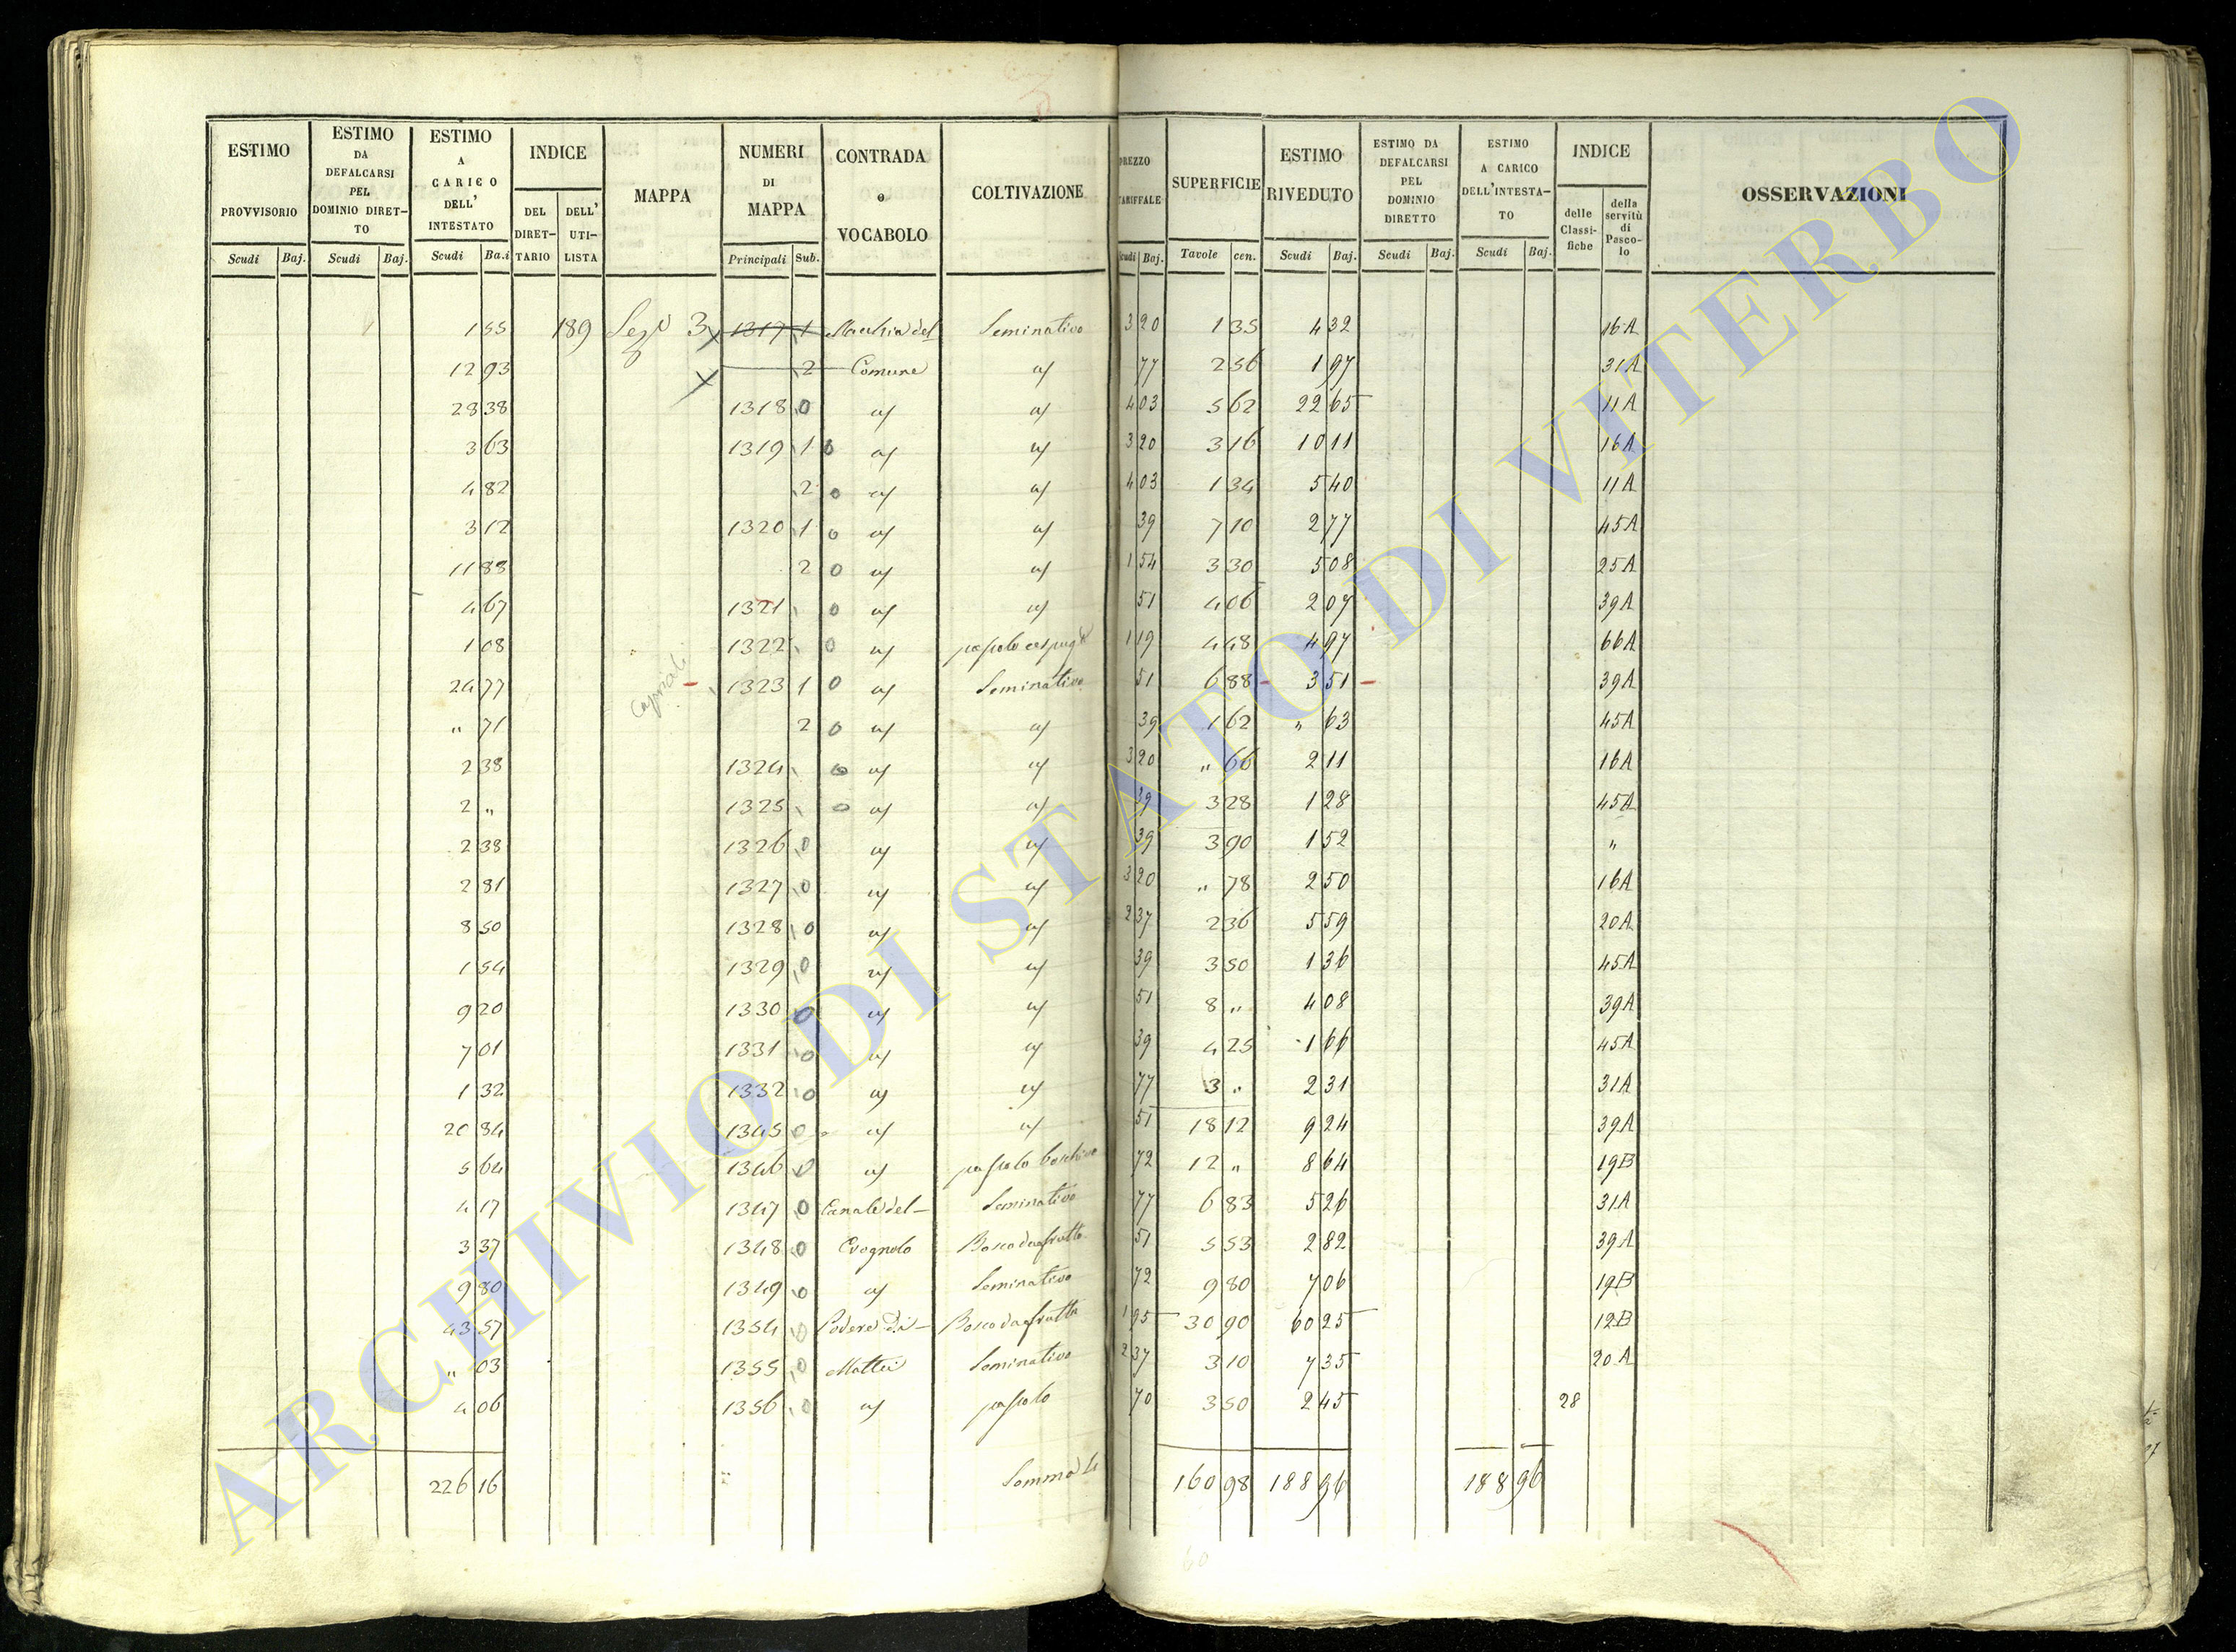 ESTIMO PROVVISORIO Scudi Baj. | ESTIMO DA DEFALCARSI PEL DOMINIO DIRETTO Scudi Baj. | ESTIMO A CARICO DELL' INTESTATO Scudi Ba.i | INDICE DEL DIRETTARIO DELL' UTILISTA | MAPPA | NUMERI DI MAPPA Principali Sub. | CONTRADA o VOCABOLO | COLTIVAZIONE | PREZZO TARIFFALE Scudi Baj. | SUPERFICIE Tavole cen. | ESTIMO RIVEDUTO Scudi Baj. | ESTIMO DA DEFALCARSI PEL DOMINIO DIRETTO Scudi Baj. | ESTIMO A CARICO DELL'INTESTATO Scudi Baj. | INDICE delle Classifiche della servitù di Pascolo | OSSERVAZIONI
1 55 189 3 1317 1 Macchia del Seminativo 3 20 1 35 4 32 16 A
12 93 2 Comune 77 2 56 1 97 31 A
28 38 1318 0 4 03 5 62 22 65 11 A
3 63 1319 1 0 3 20 3 16 10 11 16 A
4 82 2 0 4 03 1 34 5 40 11 A
3 12 1320 1 0 39 7 10 2 77 45 A
11 88 2 0 1 54 3 30 5 08 25 A
4 67 1321 0 51 4 06 2 07 39 A
1 08 1322 0 1 19 4 48 4 97 66 A
24 77 1323 1 0 Seminativo 51 6 88 3 51 39 A
" 71 2 0 39 1 62 " 63 45 A
2 38 1324 0 3 20 " 66 2 11 16 A
2 " 1325 0 39 3 28 1 28 45 A
2 38 1326 0 39 3 90 1 52 "
2 81 1327 0 3 20 " 78 2 50 16 A
8 50 1328 0 2 37 2 36 5 59 20 A
1 54 1329 0 39 3 50 1 36 45 A
9 20 1330 0 51 8 " 4 08 39 A
7 01 1331 0 39 4 25 1 66 45 A
1 32 1332 0 77 3 " 2 31 31 A
20 84 1345 0 51 18 12 9 24 39 A
5 64 1346 0 pascolo boschivo 72 12 " 8 64 19 B
4 17 1347 0 Canale del Seminativo 77 6 83 5 26 31 A
3 37 1348 0 Bosco da frutto 51 5 53 2 82 39 A
9 80 1349 0 Seminativo 72 9 80 7 06 19 B
43 57 1354 0 Podere di Bosco da frutto 1 95 30 90 60 25 12 B
" 03 1355 0 Mattei Seminativo 2 37 3 10 7 35 20 A
4 06 1356 0 pascolo 70 3 50 2 45 28
226 16 Somma 160 98 188 96 188 96
ARCHIVIO DI STATO DI VITERBO